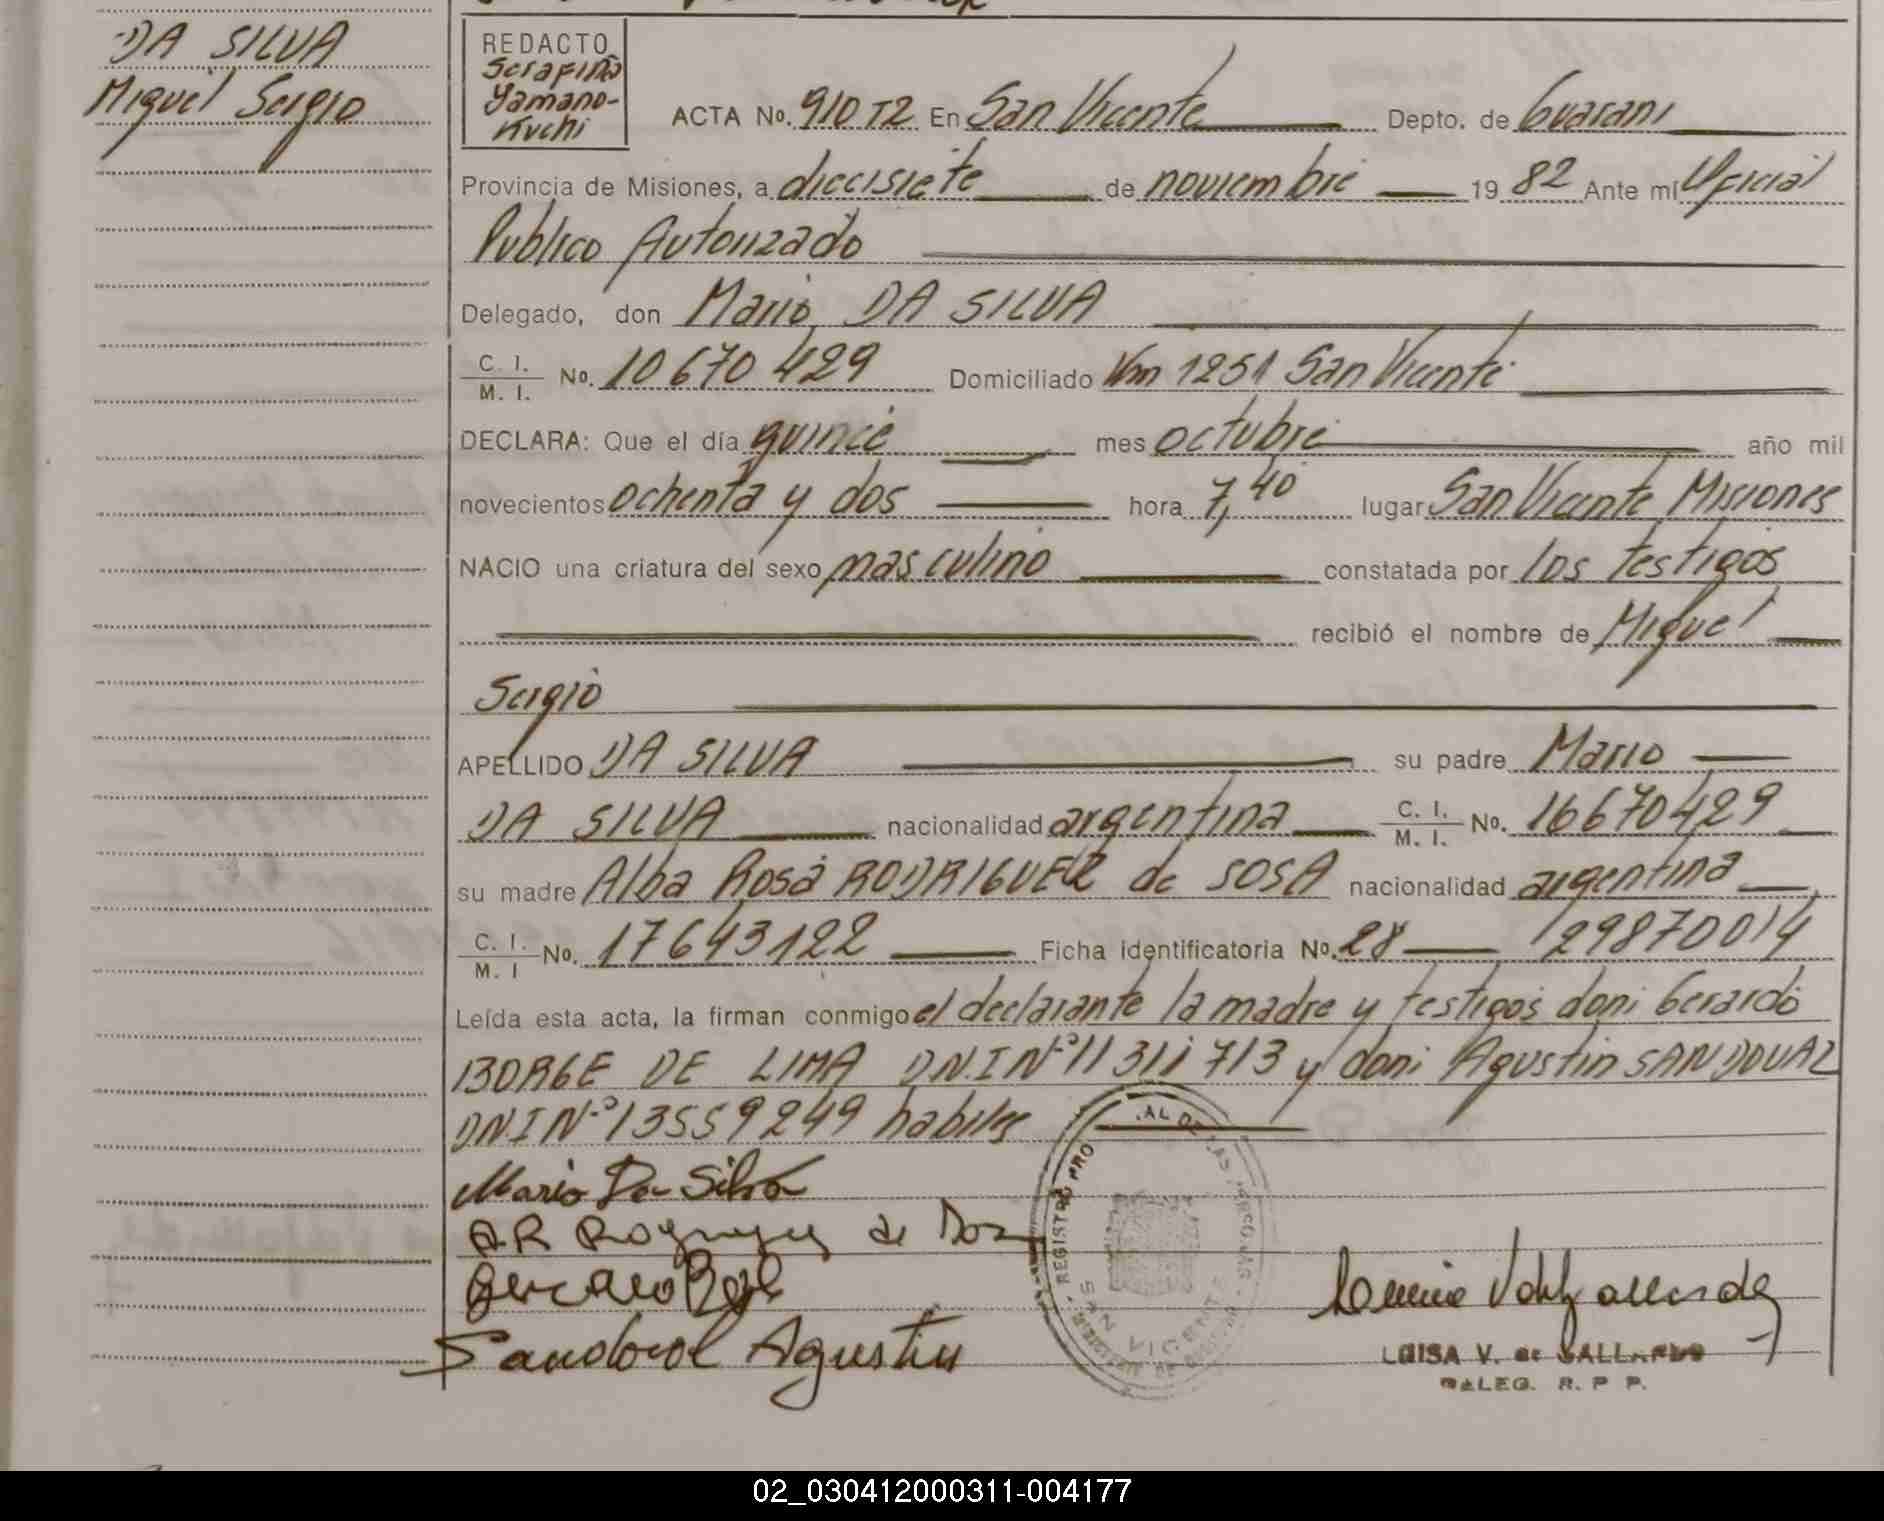 DA SILVA
Miguel Sergio
REDACTO
Serafina
Yamano-
Kuchi
ACTA No. 910 T2 En San Vicente Depto. de Guarani
Provincia de Misiones, a diecisiete de noviembre 19 82 Ante mí Oficial
Publico Autorizado
Delegado, don Mario DA SILVA
C. I.
M. I. No. 10670429 Domiciliado Km 1251 San Vicente
DECLARA: Que el día quince mes octubre año mil
novecientos ochenta y dos hora 7,40 lugar San Vicente Misiones
NACIO una criatura del sexo masculino constatada por los testigos
recibió el nombre de Miguel
Sergio
APELLIDO DA SILVA su padre Mario
DA SILVA nacionalidad argentina C. I.
M. I. No. 16670429
su madre Alba Rosa RODRIGUEZ de SOSA nacionalidad argentina
C. I.
M. I No. 17643122 Ficha identificatoria No. 28 29870014
Leída esta acta, la firman conmigo el declarante la madre y testigos don: Gerardo
BORGE DE LIMA DN.I Nº 11311713 y don: Agustin SANDOVAL
DN.I Nº 13559249 habiles
Mario Da Silva
A.R. de
Sandoval Agustin
REGISTRO PRO AL DE LAS PERSONAS
SAN VICENTE
LUISA V. de GALLARDO
DELEG. R. P P.
02_030412000311-004177